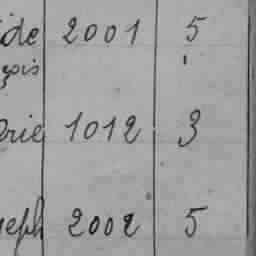 ide 2001 5
çois
érie 1012 3
seph 2002 5